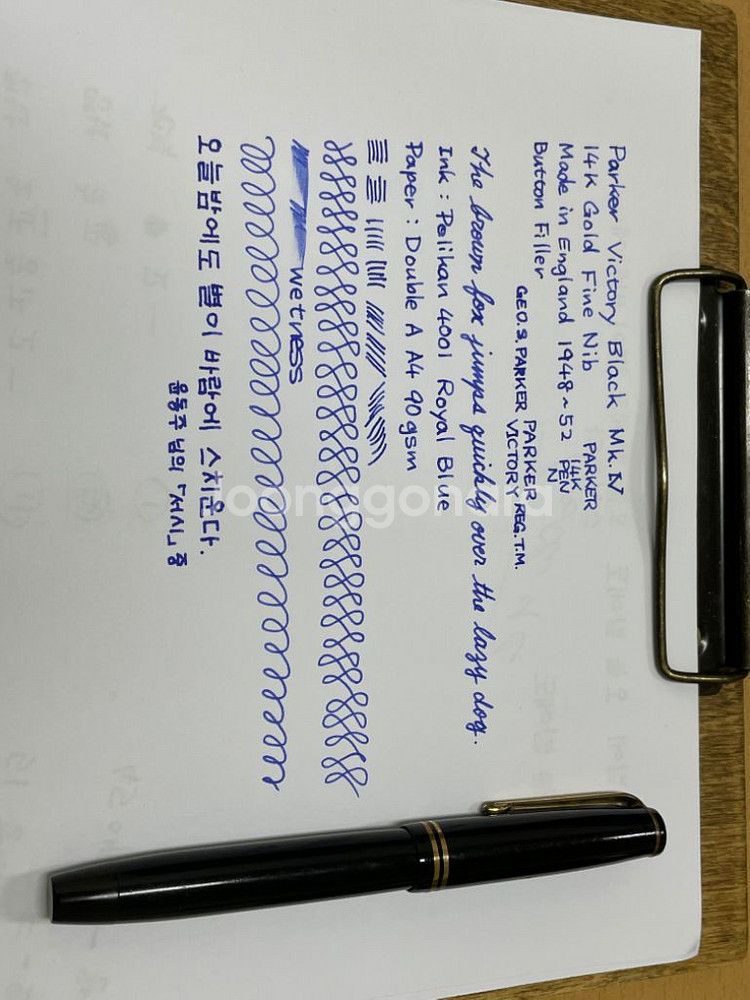 Parker Victory Black Mk.IV
14K Gold Fine Nib
Made in England 1948~52
Button Filler
PARKER
14K
PEN
N
GEO.S.PARKER PARKER REG.T.M.
VICTORY
The brown fox jumps quickly over the lazy dog.
Ink : Pelihan 4001 Royal Blue
Paper : Double A A4 90gsm
wetness
오늘밤에도 별이 바람에 스치운다.
윤동주 님의 「서시」 중
joonggonara